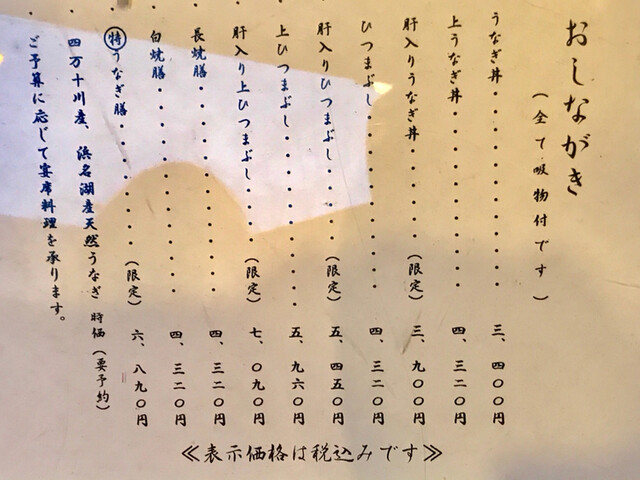 おしながき
(全て吸物付です)
うなぎ丼・・・・・・・・・・三、四〇〇円
上うなぎ丼・・・・・・・・・四、三二〇円
肝入りうなぎ丼・・・・・(限定) 三、九〇〇円
ひつまぶし・・・・・・・・・四、三二〇円
肝入りひつまぶし・・・・(限定) 五、四五〇円
上ひつまぶし・・・・・・・・五、九六〇円
肝入り上ひつまぶし・・・(限定) 七、〇九〇円
長焼膳・・・・・・・・・・・四、三二〇円
白焼膳・・・・・・・・・・・四、三二〇円
特うなぎ膳・・・・・・・(限定) 六、八九〇円
四万十川産、浜名湖産天然うなぎ 時価(要予約)
ご予算に応じて宴席料理を承ります。
≪表示価格は税込みです≫